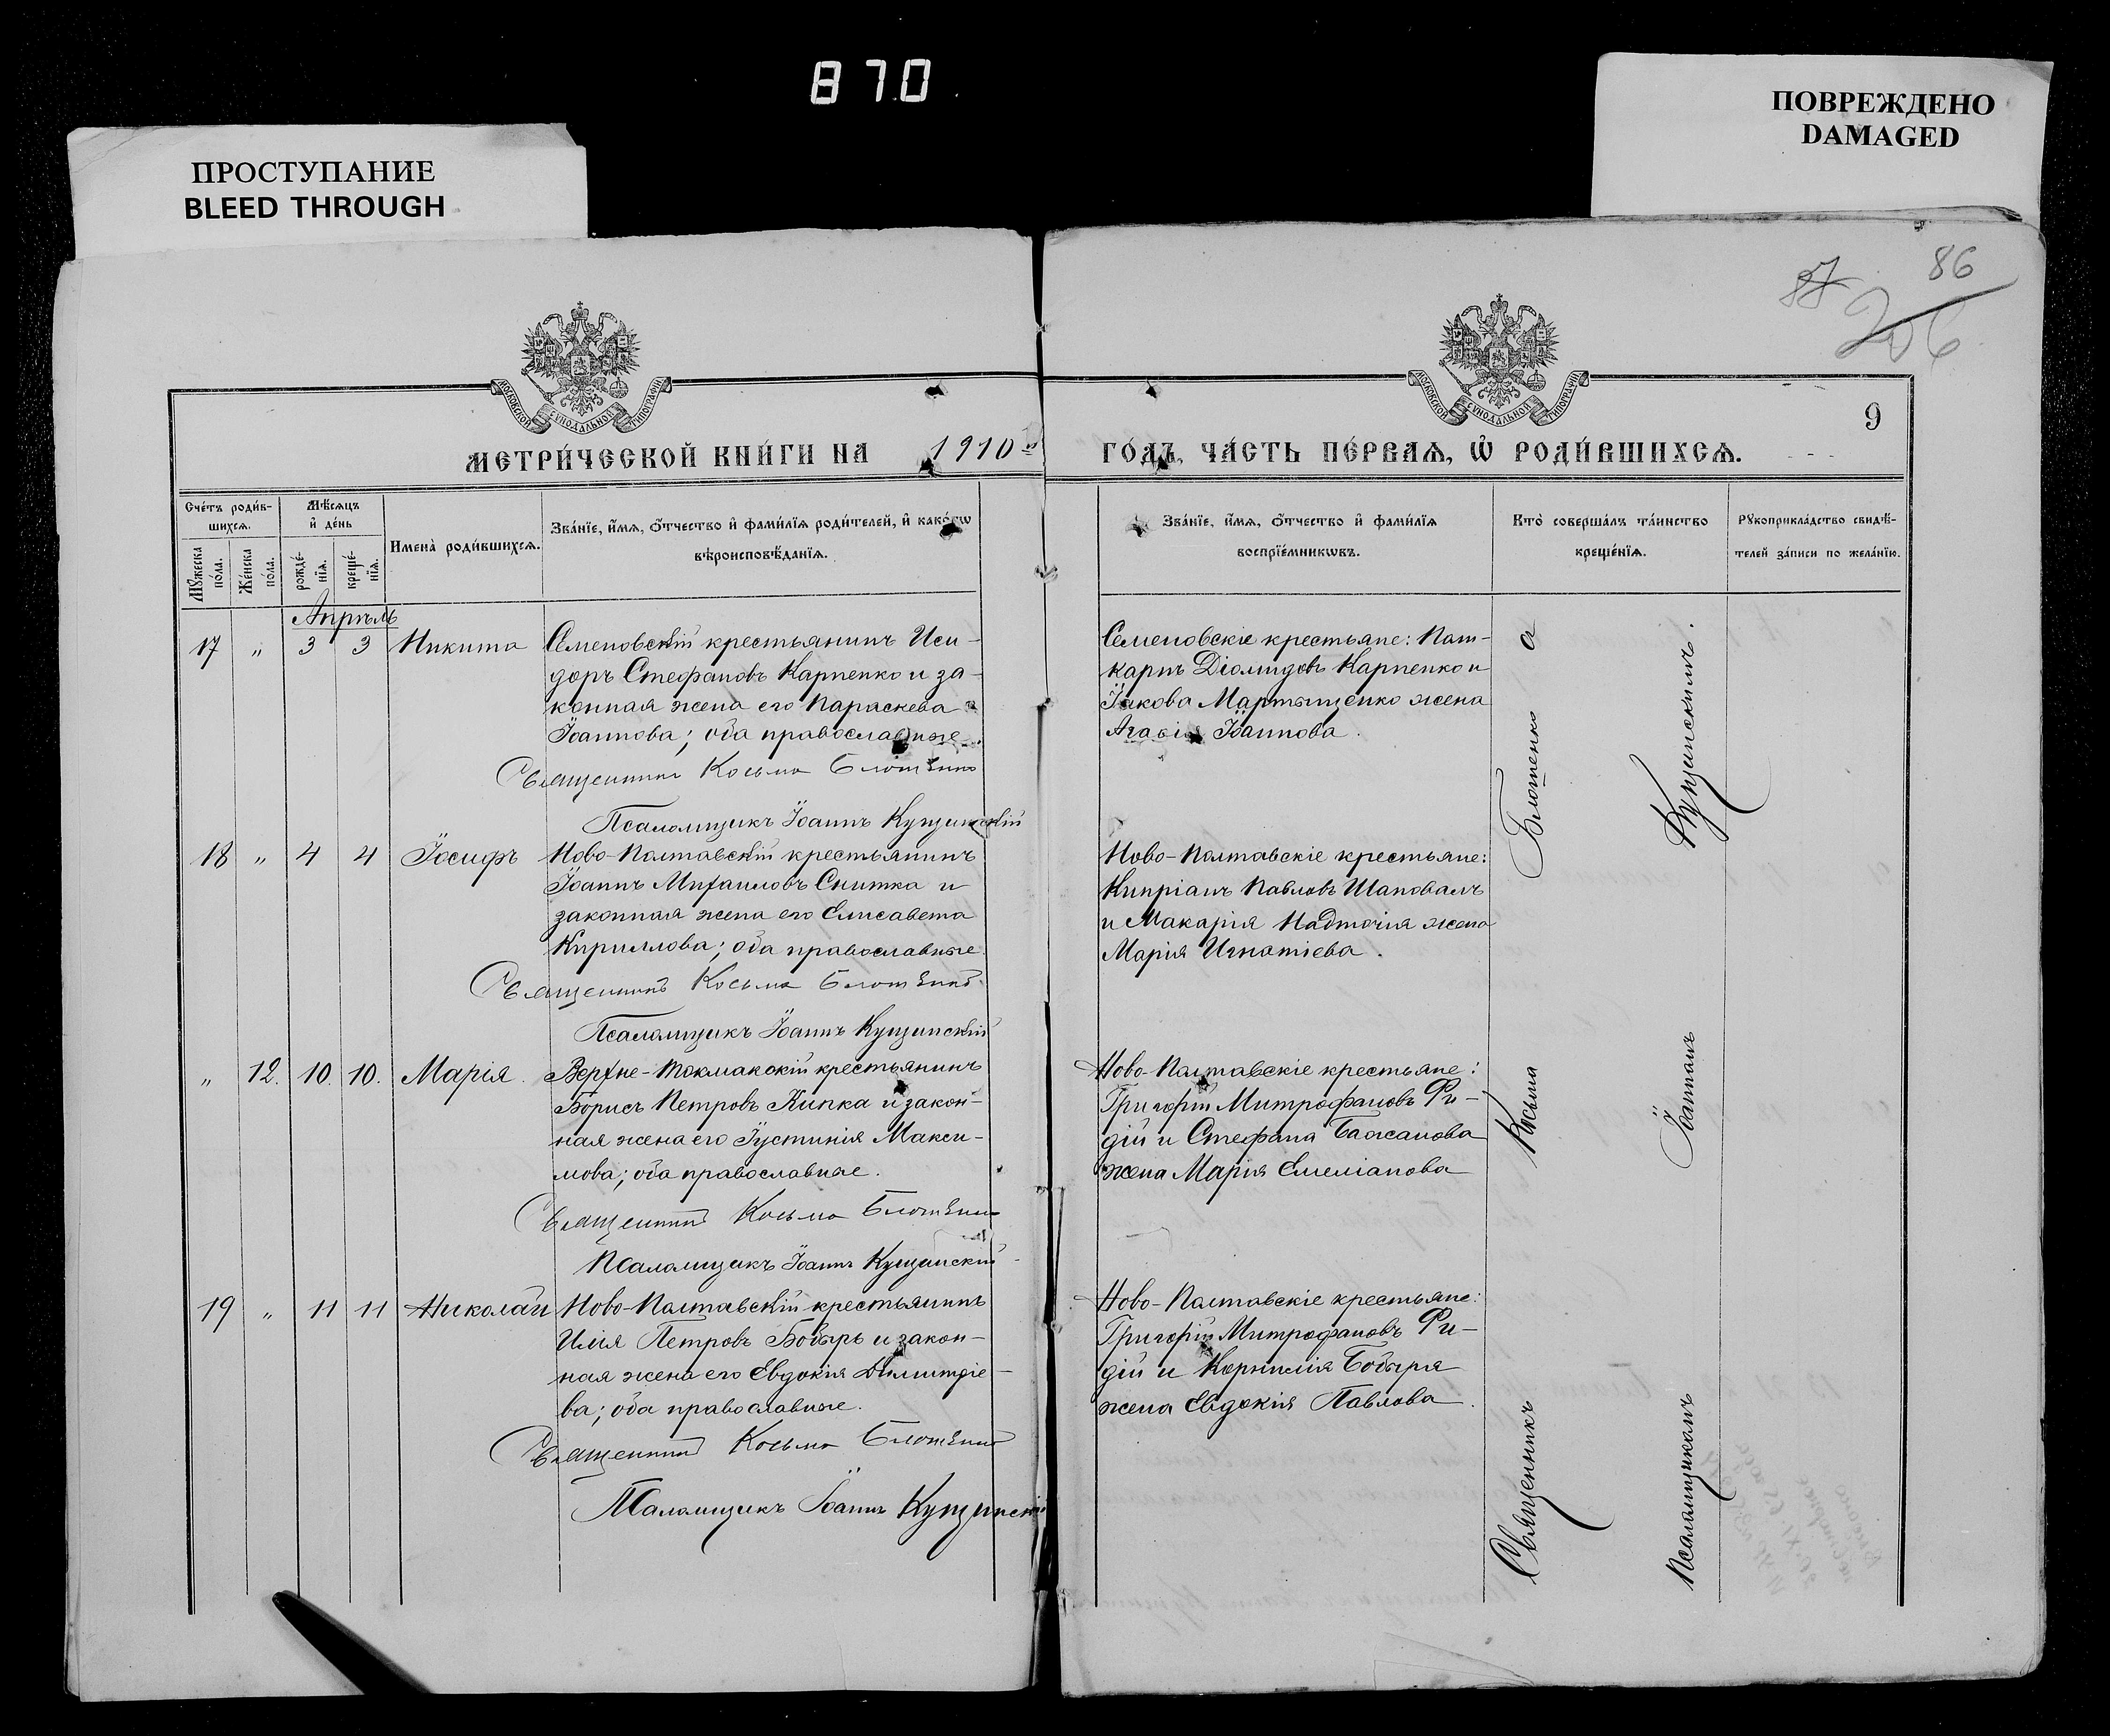 870
ПРОСТУПАНИЕ
BLEED THROUGH
ПОВРЕЖДЕНО
DAMAGED
86
87
206
МОСКОВСКОЙ СѴНОДАЛЬНОЙ ТИПОГРАФІИ
МОСКОВСКОЙ СѴНОДАЛЬНОЙ ТИПОГРАФІИ
9
МЕТРИ́ЧЕСКОЙ КНИ́ГИ НА 1910
ГО́ДЪ, ЧА́СТЬ ПЕ́РВАѦ, Ѡ҆ РОДИ́ВШИХСѦ.
Сче́тъ роди́в-
шихсѧ.
Мꙋ́жеска по́ла.
Же́нска по́ла.
Мѣ́сѧцъ
и҆ де́нь
рожде́-
нїѧ.
креще́-
нїѧ.
И҆мена̀ роди́вшихсѧ.
Зва́нїе, и҆́мѧ, ѻ҆́тчество и҆ фами́лїѧ роди́телей, и҆ како́гѡ
вѣроисповѣ́данїѧ.
Зва́нїе, и҆́мѧ, ѻ҆́тчество и҆ фами́лїѧ
воспрїе́мникѡвъ.
Кто̀ соверша́лъ та́инство
креще́нїѧ.
Рꙋкоприкла́дство свидѣ́-
телей за́писи по жела́нїю.
Апрѣль
17 " 3 3 Никита
Семеновскій крестьянинъ Иси-
доръ Стефановъ Карпенко и за-
конная жена его Параскева
Іоаннова; оба православные.
Священникъ Косьма Блотенко
Псаломщикъ Іоаннъ Кущинскій
Семеновскіе крестьяне:
Діомидовъ Карпенко и
Іакова Мартыщенко жена
Агафія Іоаннова.
18 " 4 4 Іосифъ
Ново-Полтавскій крестьянинъ
Іоаннъ Михаиловъ Снитка и
законная жена его Елисавета
Кириллова; оба православные
Священникъ Косьма Блотенко
Псаломщикъ Іоаннъ Кущинскій
Ново-Полтавскіе крестьяне:
Кипріанъ Павловъ Шаповалъ
и Макарія Надточія жена
Марія Игнатіева.
" 12. 10. 10. Марія.
Верхне-Токмакскій крестьянинъ
Борисъ Петровъ Кипка и закон-
ная жена его Іустинія Макси-
мова; оба православные.
Священникъ Косьма Блотенко
Псаломщикъ Іоаннъ Кущинскій
Ново-Полтавскіе крестьяне:
Григорій Митрофановъ Ри-
дій и Стефана Бажанова
жена Марія Емеліанова
19 " 11 11 Николай
Ново-Полтавскій крестьянинъ
Илія Петровъ Бобырь и закон-
ная жена его Евдокія Димитріе-
ва; оба православные.
Священникъ Косьма Блотенко
Псаломщикъ Іоаннъ Кущинскій
Ново-Полтавскіе крестьяне:
Григорій Митрофановъ Ри-
дій и Корнилія Бобыря
жена Евдокія Павлова.
Священникъ Косьма Блотенко
Псаломщикомъ Іоанномъ Кущинскимъ.